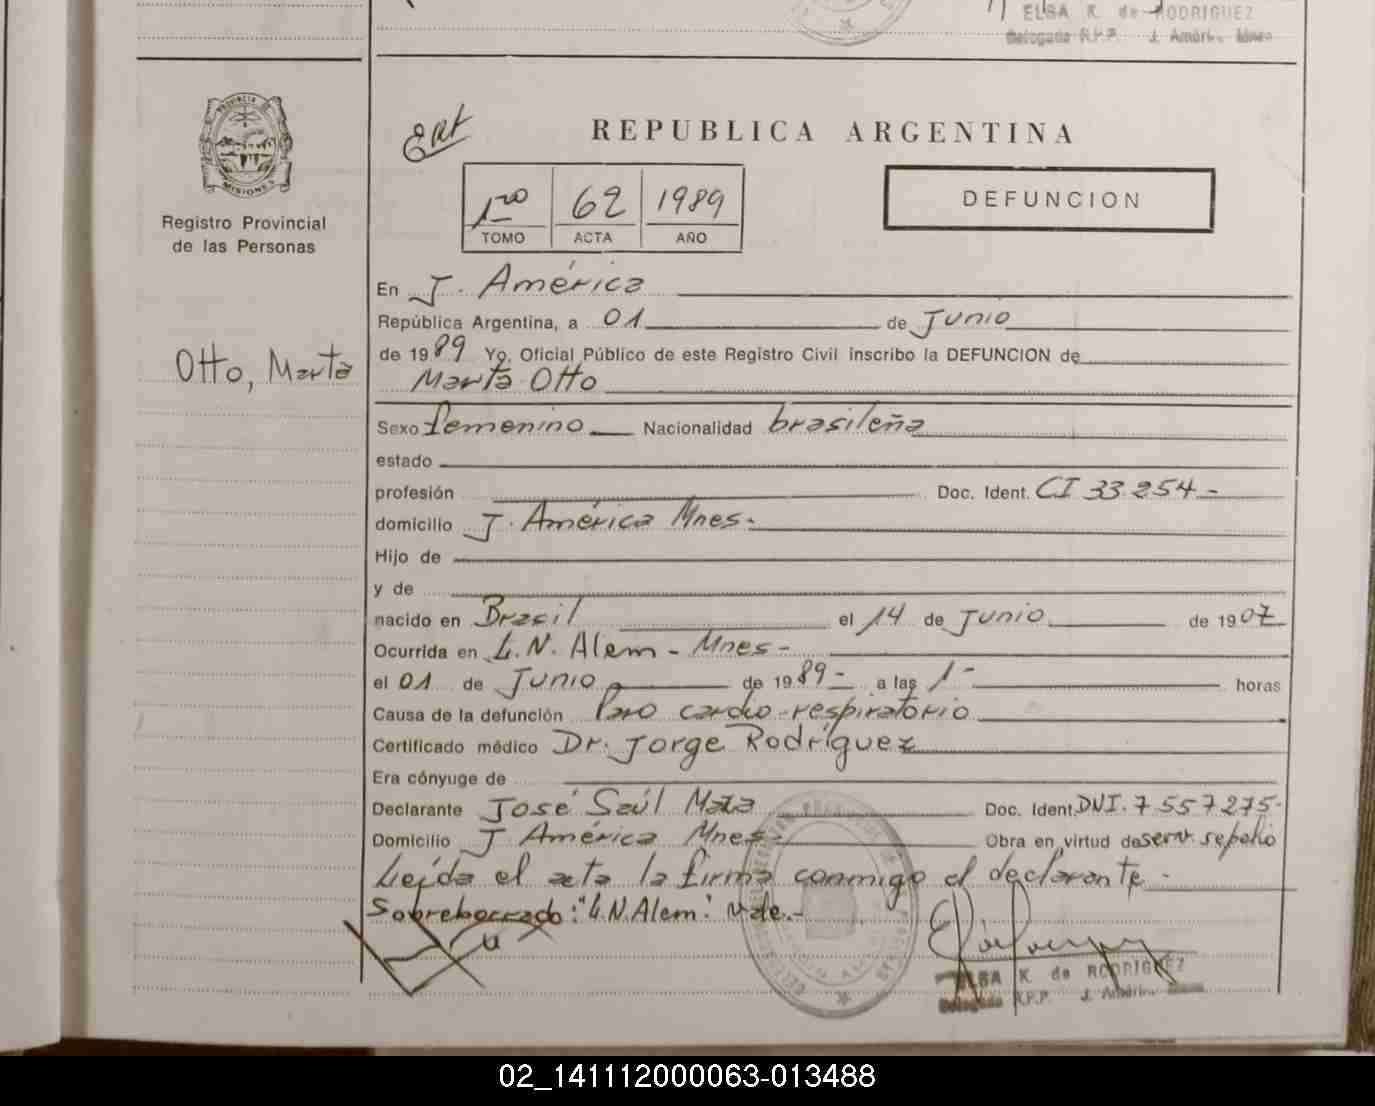 ELSA K. de RODRIGUEZ
Delegada R.P.P. J. Améric. Mnes
PROVINCIA DE
MISIONES
Registro Provincial
de las Personas
Otto, Marta
Ext
REPUBLICA ARGENTINA
1ro 62 1989
TOMO ACTA AÑO
DEFUNCION
En J. América
República Argentina, a 01 de Junio
de 1989 Yo, Oficial Público de este Registro Civil inscribo la DEFUNCION de
Marta Otto
Sexo femenino Nacionalidad brasileña
estado
profesión Doc. Ident. CI 33.254-
domicilio J. América Mnes-
Hijo de
y de
nacido en Brasil el 14 de Junio de 1907
Ocurrida en L.N. Alem - Mnes-
el 01 de Junio de 1989- a las 1- horas
Causa de la defunción Paro cardio-respiratorio
Certificado médico Dr. Jorge Rodríguez
Era cónyuge de
Declarante José Saúl Mata Doc. Ident. DNI. 7 557 275-
Domicilio J América Mnes- Obra en virtud de serv. sepelio
Leída el acta la firma conmigo el declarante-
Sobreborrado: "L.N.Alem." Vale.-
ELSA K. de RODRIGUEZ
Delegada R.P.P. J. Améric. Mnes
02_141112000063-013488